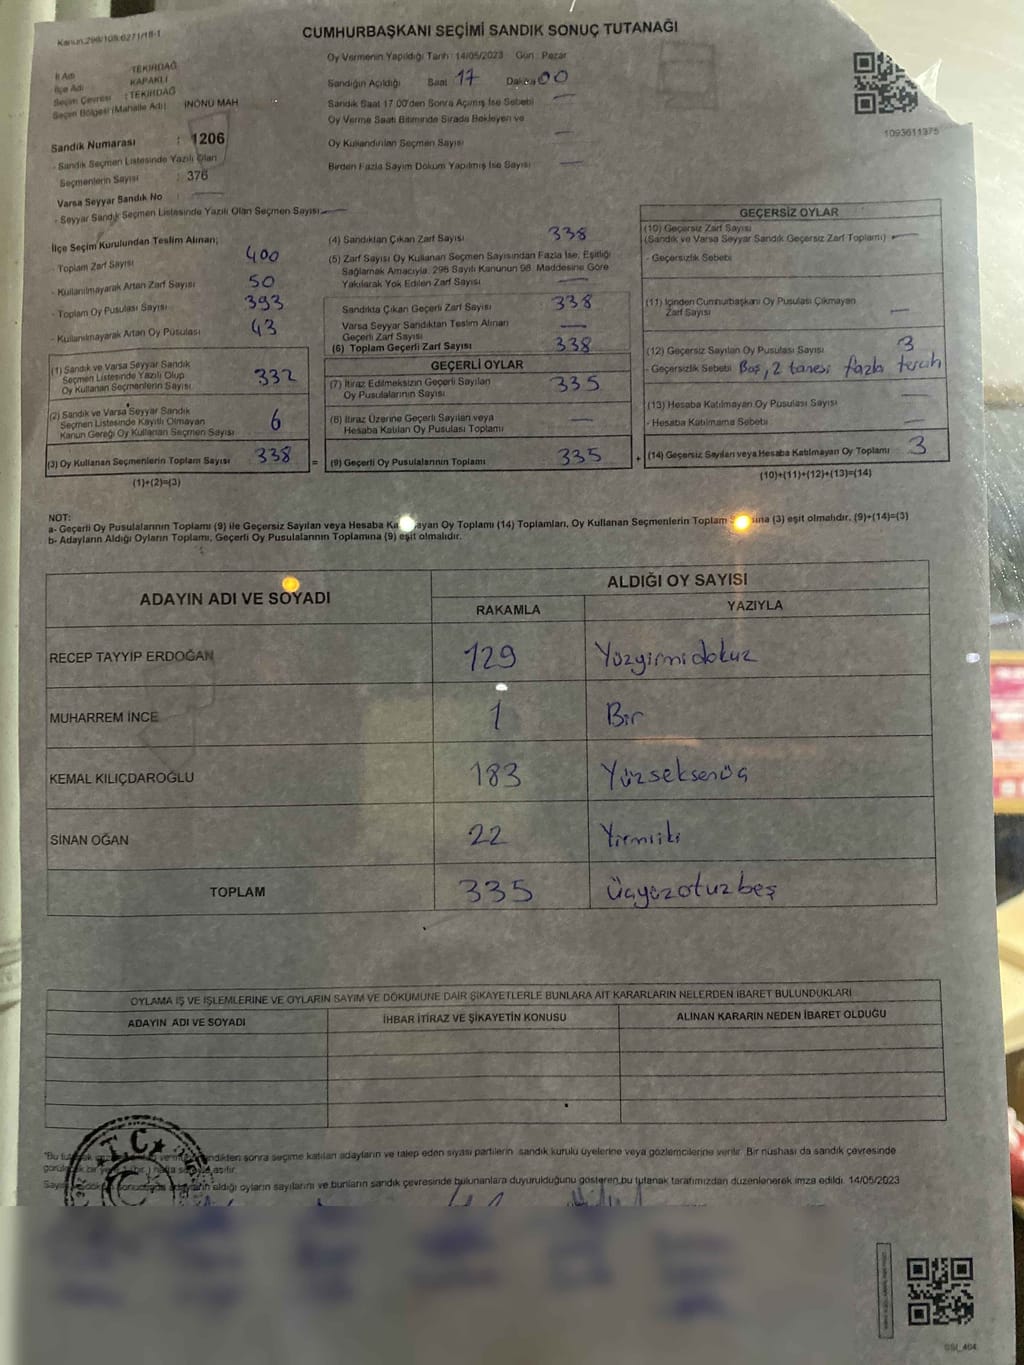 Kanun:298/105;6271/18-1
CUMHURBAŞKANI SEÇİMİ SANDIK SONUÇ TUTANAĞI
İl Adı TEKİRDAĞ
İlçe Adı KAPAKLI
Seçim Çevresi : TEKİRDAĞ
Seçim Bölgesi (Mahalle Adı) İNÖNÜ MAH
Sandık Numarası : 1206
- Sandık Seçmen Listesinde Yazılı Olan
Seçmenlerin Sayısı : 376
Varsa Seyyar Sandık No
- Seyyar Sandık Seçmen Listesinde Yazılı Olan Seçmen Sayısı
Oy Vermenin Yapıldığı Tarih : 14/05/2023 Gün : Pazar
Sandığın Açıldığı Saat 17 Dakika 00
Sandık Saat 17.00'den Sonra Açılmış İse Sebebi —
Oy Verme Saati Bitiminde Sırada Bekleyen ve
Oy Kullandırılan Seçmen Sayısı —
Birden Fazla Sayım Döküm Yapılmış İse Sayısı —
1093611375
İlçe Seçim Kurulundan Teslim Alınan;
- Toplam Zarf Sayısı 400
- Kullanılmayarak Artan Zarf Sayısı 50
- Toplam Oy Pusulası Sayısı 393
- Kullanılmayarak Artan Oy Pusulası 43
(1) Sandık ve Varsa Seyyar Sandık
Seçmen Listesinde Yazılı Olup
Oy Kullanan Seçmenlerin Sayısı 332
(2) Sandık ve Varsa Seyyar Sandık
Seçmen Listesinde Kayıtlı Olmayan
Kanun Gereği Oy Kullanan Seçmen Sayısı 6
(3) Oy Kullanan Seçmenlerin Toplam Sayısı 338
(1)+(2)=(3)
(4) Sandıktan Çıkan Zarf Sayısı 338
(5) Zarf Sayısı Oy Kullanan Seçmen Sayısından Fazla İse, Eşitliği
Sağlamak Amacıyla, 298 Sayılı Kanunun 98. Maddesine Göre
Yakılarak Yok Edilen Zarf Sayısı —
Sandıkta Çıkan Geçerli Zarf Sayısı 338
Varsa Seyyar Sandıktan Teslim Alınan
Geçerli Zarf Sayısı —
(6) Toplam Geçerli Zarf Sayısı 338
GEÇERLİ OYLAR
(7) İtiraz Edilmeksizin Geçerli Sayılan
Oy Pusulalarının Sayısı 335
(8) İtiraz Üzerine Geçerli Sayılan veya
Hesaba Katılan Oy Pusulası Toplamı —
= (9) Geçerli Oy Pusulalarının Toplamı 335
GEÇERSİZ OYLAR
(10) Geçersiz Zarf Sayısı
(Sandık ve Varsa Seyyar Sandık Geçersiz Zarf Toplamı) —
- Geçersizlik Sebebi
(11) İçinden Cumhurbaşkanı Oy Pusulası Çıkmayan
Zarf Sayısı —
(12) Geçersiz Sayılan Oy Pusulası Sayısı 3
- Geçersizlik Sebebi Boş, 2 tanesi fazla tercih
(13) Hesaba Katılmayan Oy Pusulası Sayısı —
- Hesaba Katılmama Sebebi —
+ (14) Geçersiz Sayılan veya Hesaba Katılmayan Oy Toplamı 3
(10)+(11)+(12)+(13)=(14)
NOT:
a- Geçerli Oy Pusulalarının Toplamı (9) ile Geçersiz Sayılan veya Hesaba Oy Toplamı (14) Toplamları, Oy Kullanan Seçmenlerin Toplam (3) eşit olmalıdır. (9)+(14)=(3)
b- Adayların Aldığı Oyların Toplamı, Geçerli Oy Pusulalarının Toplamına (9) eşit olmalıdır.
ADAYIN ADI VE SOYADI ALDIĞI OY SAYISI
RAKAMLA YAZIYLA
RECEP TAYYİP ERDOĞAN 129 Yüzyirmidokuz
MUHARREM İNCE 1 Bir
KEMAL KILIÇDAROĞLU 183 Yüzseksenüç
SİNAN OĞAN 22 Yirmiiki
TOPLAM 335 Üçyüzotuzbeş
OYLAMA İŞ VE İŞLEMLERİNE VE OYLARIN SAYIM VE DÖKÜMÜNE DAİR ŞİKAYETLERLE BUNLARA AİT KARARLARIN NELERDEN İBARET BULUNDUKLARI
ADAYIN ADI VE SOYADI İHBAR İTİRAZ VE ŞİKAYETİN KONUSU ALINAN KARARIN NEDEN İBARET OLDUĞU
T.C.
sonra seçime katılan adayların ve talep eden siyasi partilerin sandık kurulu üyelerine veya gözlemcilerine verilir. Bir nüshası da sandık çevresinde
aldığı oyların sayılarını ve bunların sandık çevresinde bulunanlara duyurulduğunu gösteren bu tutanak tarafımızdan düzenlenerek imza edildi. 14/05/2023